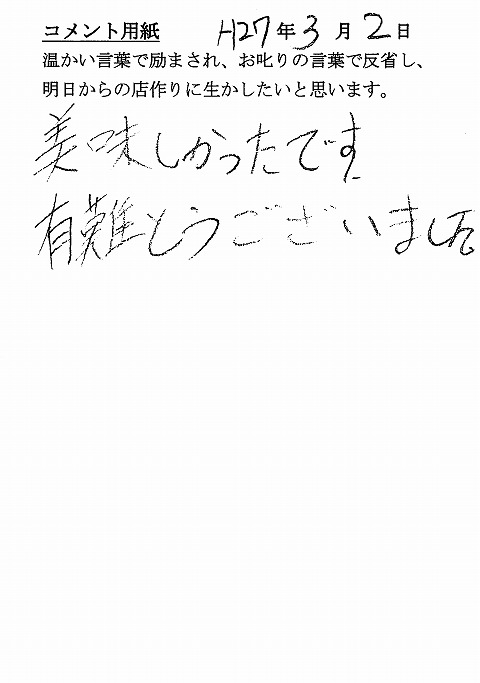 コメント用紙 H27年3月2日
温かい言葉で励まされ、お叱りの言葉で反省し、
明日からの店作りに生かしたいと思います。
美味しかったです
有難とうございました